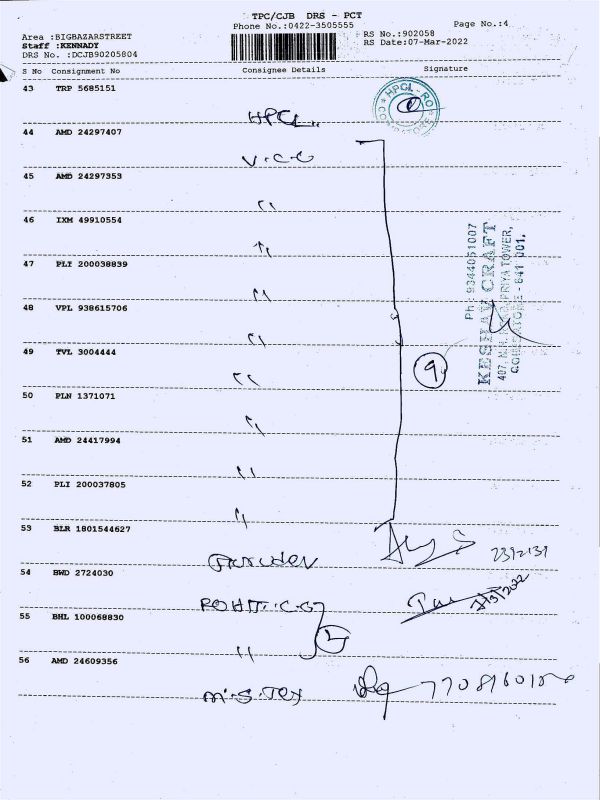 TPC/CJB DRS - PCT
Phone No.:0422-3505555
Page No.:4
Area :BIGBAZARSTREET
Staff :KENNADY
DRS No. :DCJB90205804
RS No.:902058
RS Date:07-Mar-2022
S No Consignment No Consignee Details Signature
43 TRP 5685151
HPCL
HPCL - RO
44 AMD 24297407
V.C.C
45 AMD 24297353
"
46 IXM 49910554
"
47 PLI 200038839
"
48 VPL 938615706
"
49 TVL 3004444
"
50 PLN 1371071
"
51 AMD 24417994
"
52 PLI 200037805
"
9
Ph : 9344051007
KESHAV CRAFT
407, N.H. TOWER,
COIMBATORE - 641 001.
53 BLR 1801544627
54 BWD 2724030
ROHIT. C.G
7/3/2022
55 BHL 100068830
"
2
56 AMD 24609356
M.S.Tex